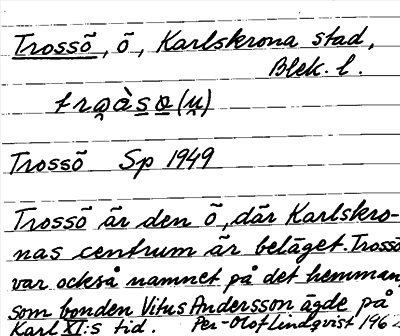 Trossö, ö, Karlskrona stad,
Blek. l.
Trossö Sp 1949
Trossö är den ö, där Karlskro-
nas centrum är beläget. Trossö
var också namnet på det hemman,
som bonden Vitus Andersson ägde på
Karl XI:s tid. Per-Olof Lindqvist